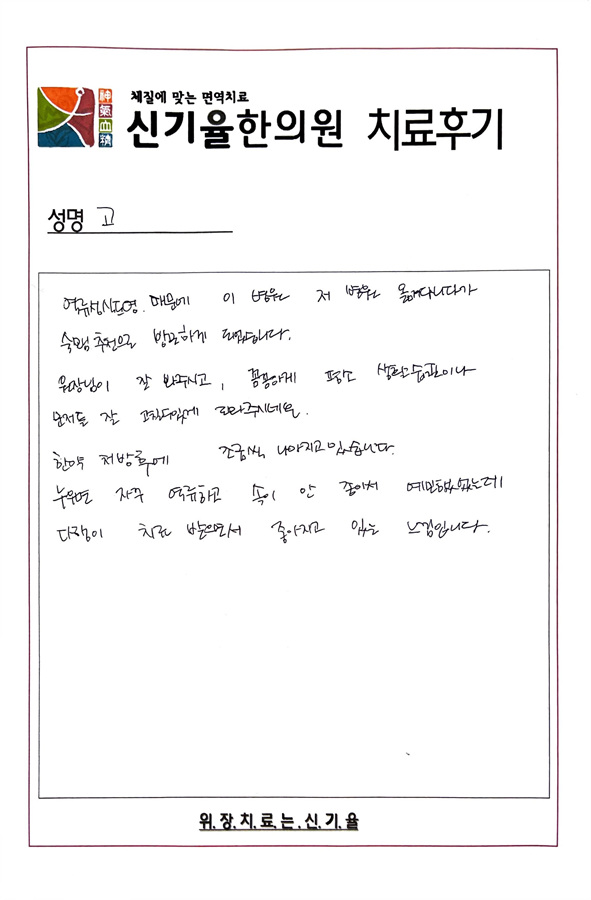 체질에 맞는 면역치료
신기율한의원 치료후기
神氣血精
성명 고
역류성식도염 때문에 이 병원 저 병원 옮겨다니다가
추천으로 방문하게 되었습니다.
원장님이 잘 봐주시고, 꼼꼼하게 평소 생활습관이나
문제들 잘 주시네요.
한약 처방후에 조금씩 나아지고있습니다.
누우면 자꾸 역류하고 속이 안 좋아서 예민했었는데
다행히 치료 받으면서 좋아지고 있는 느낌입니다.
위.장.치.료.는.신.기.율